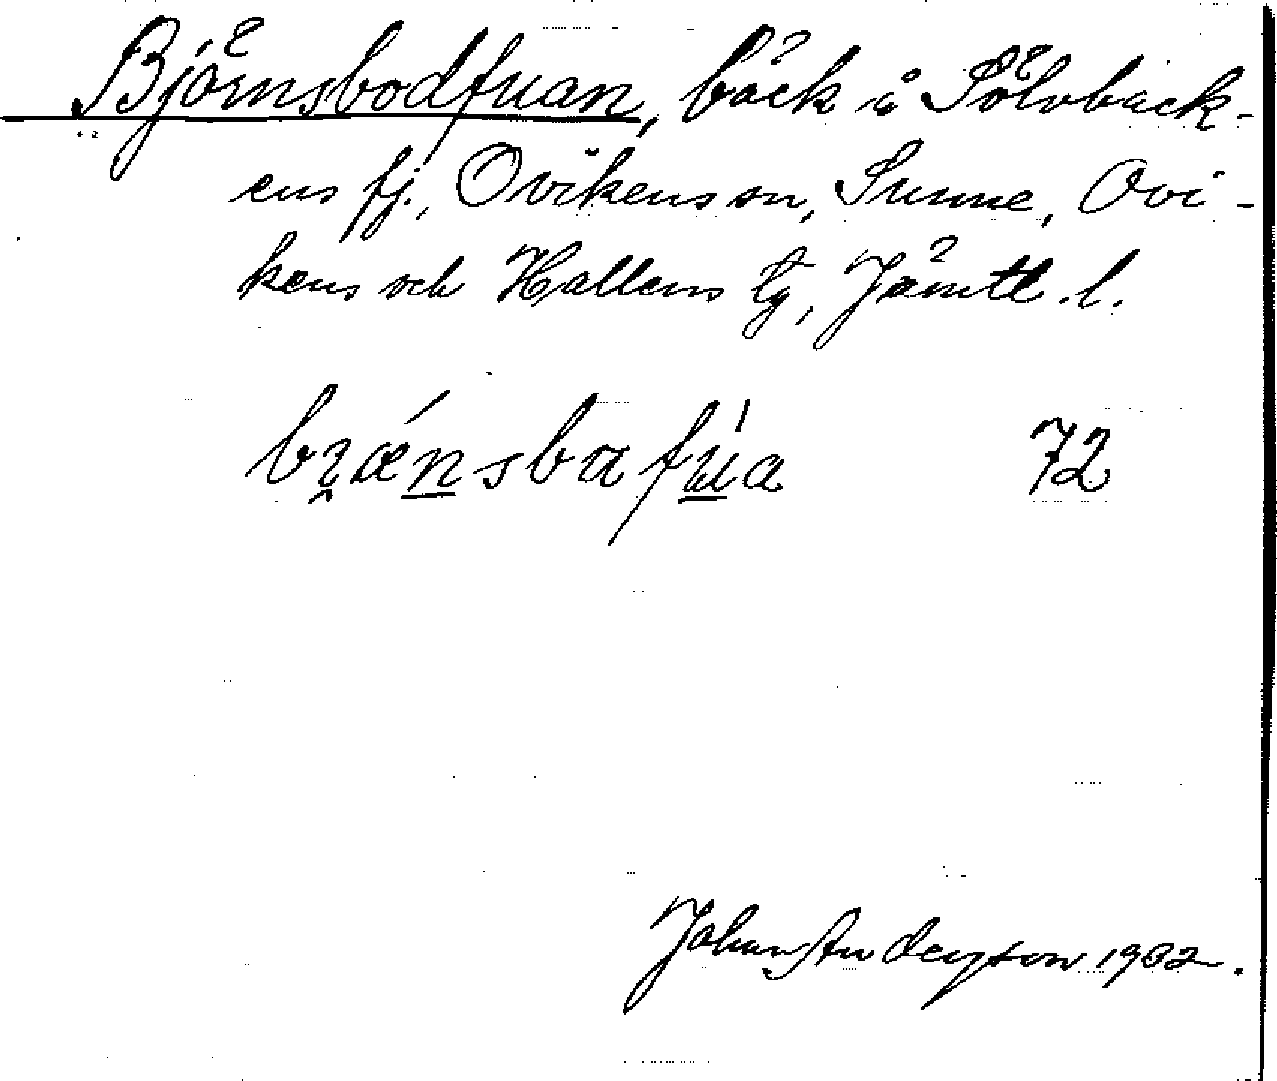 Björnsbodfuan, bäck i Sölvback-
ens fj., Ovikens sn, Sunne, Ovi-
kens och Hallens tg, Jämtl. l.
bræ´nsbafúa 72
Johan Anderson 1902.